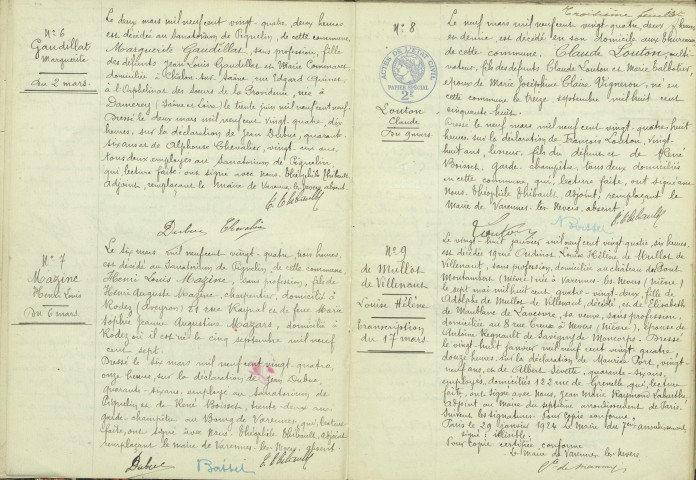 N° 6
Gaudillat
Marguerite
du 2 mars
Le deux mars mil neuf cent vingt-quatre, deux heures
est décédée au Sanatorium de Pignelin, de cette commune
Marguerite Gaudillat, sans profession, fille
des défunts Jean Louis Gaudillat et Marie
domiciliée à Châlon sur Saône, rue Edgard Quinet,
à l'Orphelinat des Sœurs de la Providence, née à
Damerey (Saône et Loire) le trente juin mil neuf cent neuf.
Dressé le deux mars mil neuf cent vingt-quatre, dix
heures, sur la déclaration de Jean Dubuc, quarante-
six ans et Alphonse Chevalier, vingt un ans,
tous deux employés au Sanatorium de Pignelin
qui, lecture faite, ont signé avec Nous, Théophile Thibault,
adjoint, remplaçant le Maire de Varennes-les-Nevers absent.
T. Thibault
Dubuc Chevalier
N° 7
Mazinc
Henri Louis
du 6 mars
Le six mars mil neuf cent vingt-quatre, trois heures,
est décédé au Sanatorium de Pignelin, de cette commune
Henri Louis Mazinc, sans profession, fils de
Henri Auguste Mazinc, charpentier, domicilié à
Rodez (Aveyron) et de feue Marie
Sophie Jeanne Augustine Mazars, domicilié à
Rodez où il est né le cinq septembre mil neuf
cent sept.
Dressé le six mars mil neuf cent vingt-quatre,
onze heures, sur la déclaration de Jean Dubuc,
quarante-six ans, employé au Sanatorium de
Pignelin et de René Boisset, trente deux ans
garde-champêtre au Bourg de Varennes qui, lecture
faite, ont signé avec Nous Théophile Thibault, adjoint
remplaçant le maire de Varennes-les-Nevers, absent.
Dubuc Boisset T. Thibault
Troisième feuillet
N° 8
ACTES DE L'ÉTAT CIVIL
PAPIER SPÉCIAL
2f
Louton
Claude
du 9 mars
Le neuf mars mil neuf cent vingt-quatre, deux heures
en demie est décédé en son domicile aux
de cette commune, Claude Louton, culti-
vateur, fils des défunts Claude Louton et Marie Talbotier,
époux de Marie Joséphine Claire Vigneron, né en
cette commune le treize septembre mil huit cent
cinquante huit.
Dressé le neuf mars mil neuf cent vingt-quatre, huit
heures sur la déclaration de François Louton, vingt-
huit ans, fils du défunt et de René
Boisset, garde-champêtre, tous deux domiciliés
en cette commune, qui, lecture faite, ont signé avec
Nous Théophile Thibault, Adjoint, remplaçant le
Maire de Varennes-les-Nevers, absent.
T. Thibault
Louton Boisset
N° 9
de Mullot
de Villenaut
Louise Hélène
transcription
du 17 mars
Le vingt-huit janvier mil neuf cent vingt-quatre, six heures,
est décédée 19 rue Oudinot, Louise Hélène de Mullot de
Villenaut, sans profession, domiciliée au château du Pont
(Nièvre) née à Varennes-les-Nevers (Nièvre)
le sept mai mil huit cent quatre-vingt-deux, fille de
Adolphe de Mullot de Villenaut, décédé, et de Elisabeth
de Maublanc de Lavesvre, sa veuve, sans profession,
domiciliée au 8 rue Creux à Nevers (Nièvre), épouse de
Antoine Regnault de Savigny de Moncorps. Dressé
le vingt-huit janvier mil neuf cent vingt-quatre
douze heures sur la déclaration de Maurice Port, vingt-
neuf ans, et de Albert Sevette, quarante-six ans,
employés, domiciliés 122 rue de Grenelle qui, lecture
faite, ont signé avec nous, Jean Marie Raymond
Adjoint au Maire du septième arrondissement de Paris.
Suivent les signatures. Pour copie conforme.
Paris le 29 janvier 1924 le Maire du 7me arrondissement,
signé : illisible.
Pour copie certifiée conforme
Le Maire de Varennes-les-Nevers